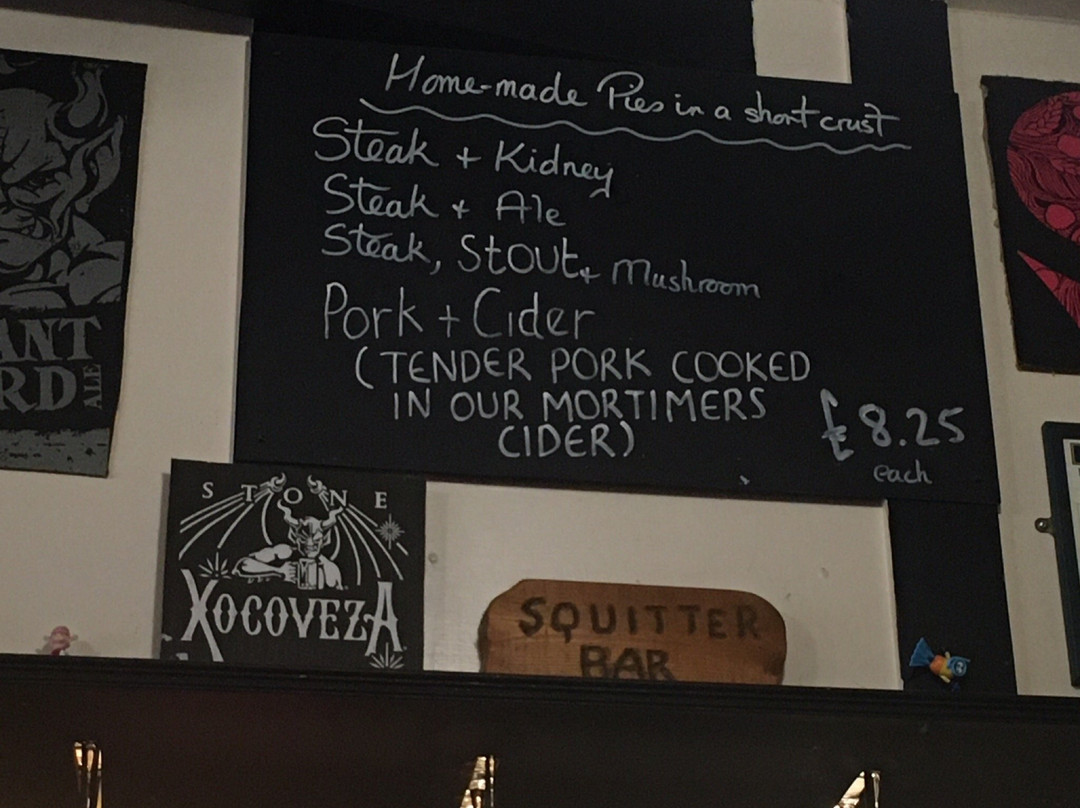 Home-made Pies in a short crust
Steak + Kidney
Steak + Ale
Steak, Stout + Mushroom
Pork + Cider
(TENDER PORK COOKED
IN OUR MORTIMERS
CIDER)
£8.25
each
ANT
RD ALE
STONE
XOCOVEZA
SQUITTER
BAR